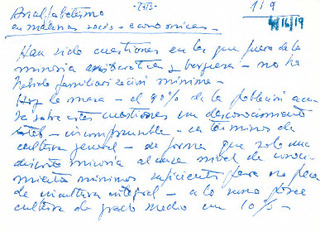 Analfabetismo -2573- 1/9
en materias socio-economicas.- 4/16/19
Han sido cuestiones en las que fuera de la
minoria aristocratica y burguesa - no ha
habido familiarizacion minima.-
Hoy la masa - el 90% de la poblacion acu-
sa sobre estas cuestiones un desconocimiento
- incomprensible - en terminos de
cultura general - de forma que solo una
minoria alcanza nivel de conoci-
mientos minimos suficientes para no pecar
de incultura integral - a lo sumo posee
cultura de grado medio un 10%-